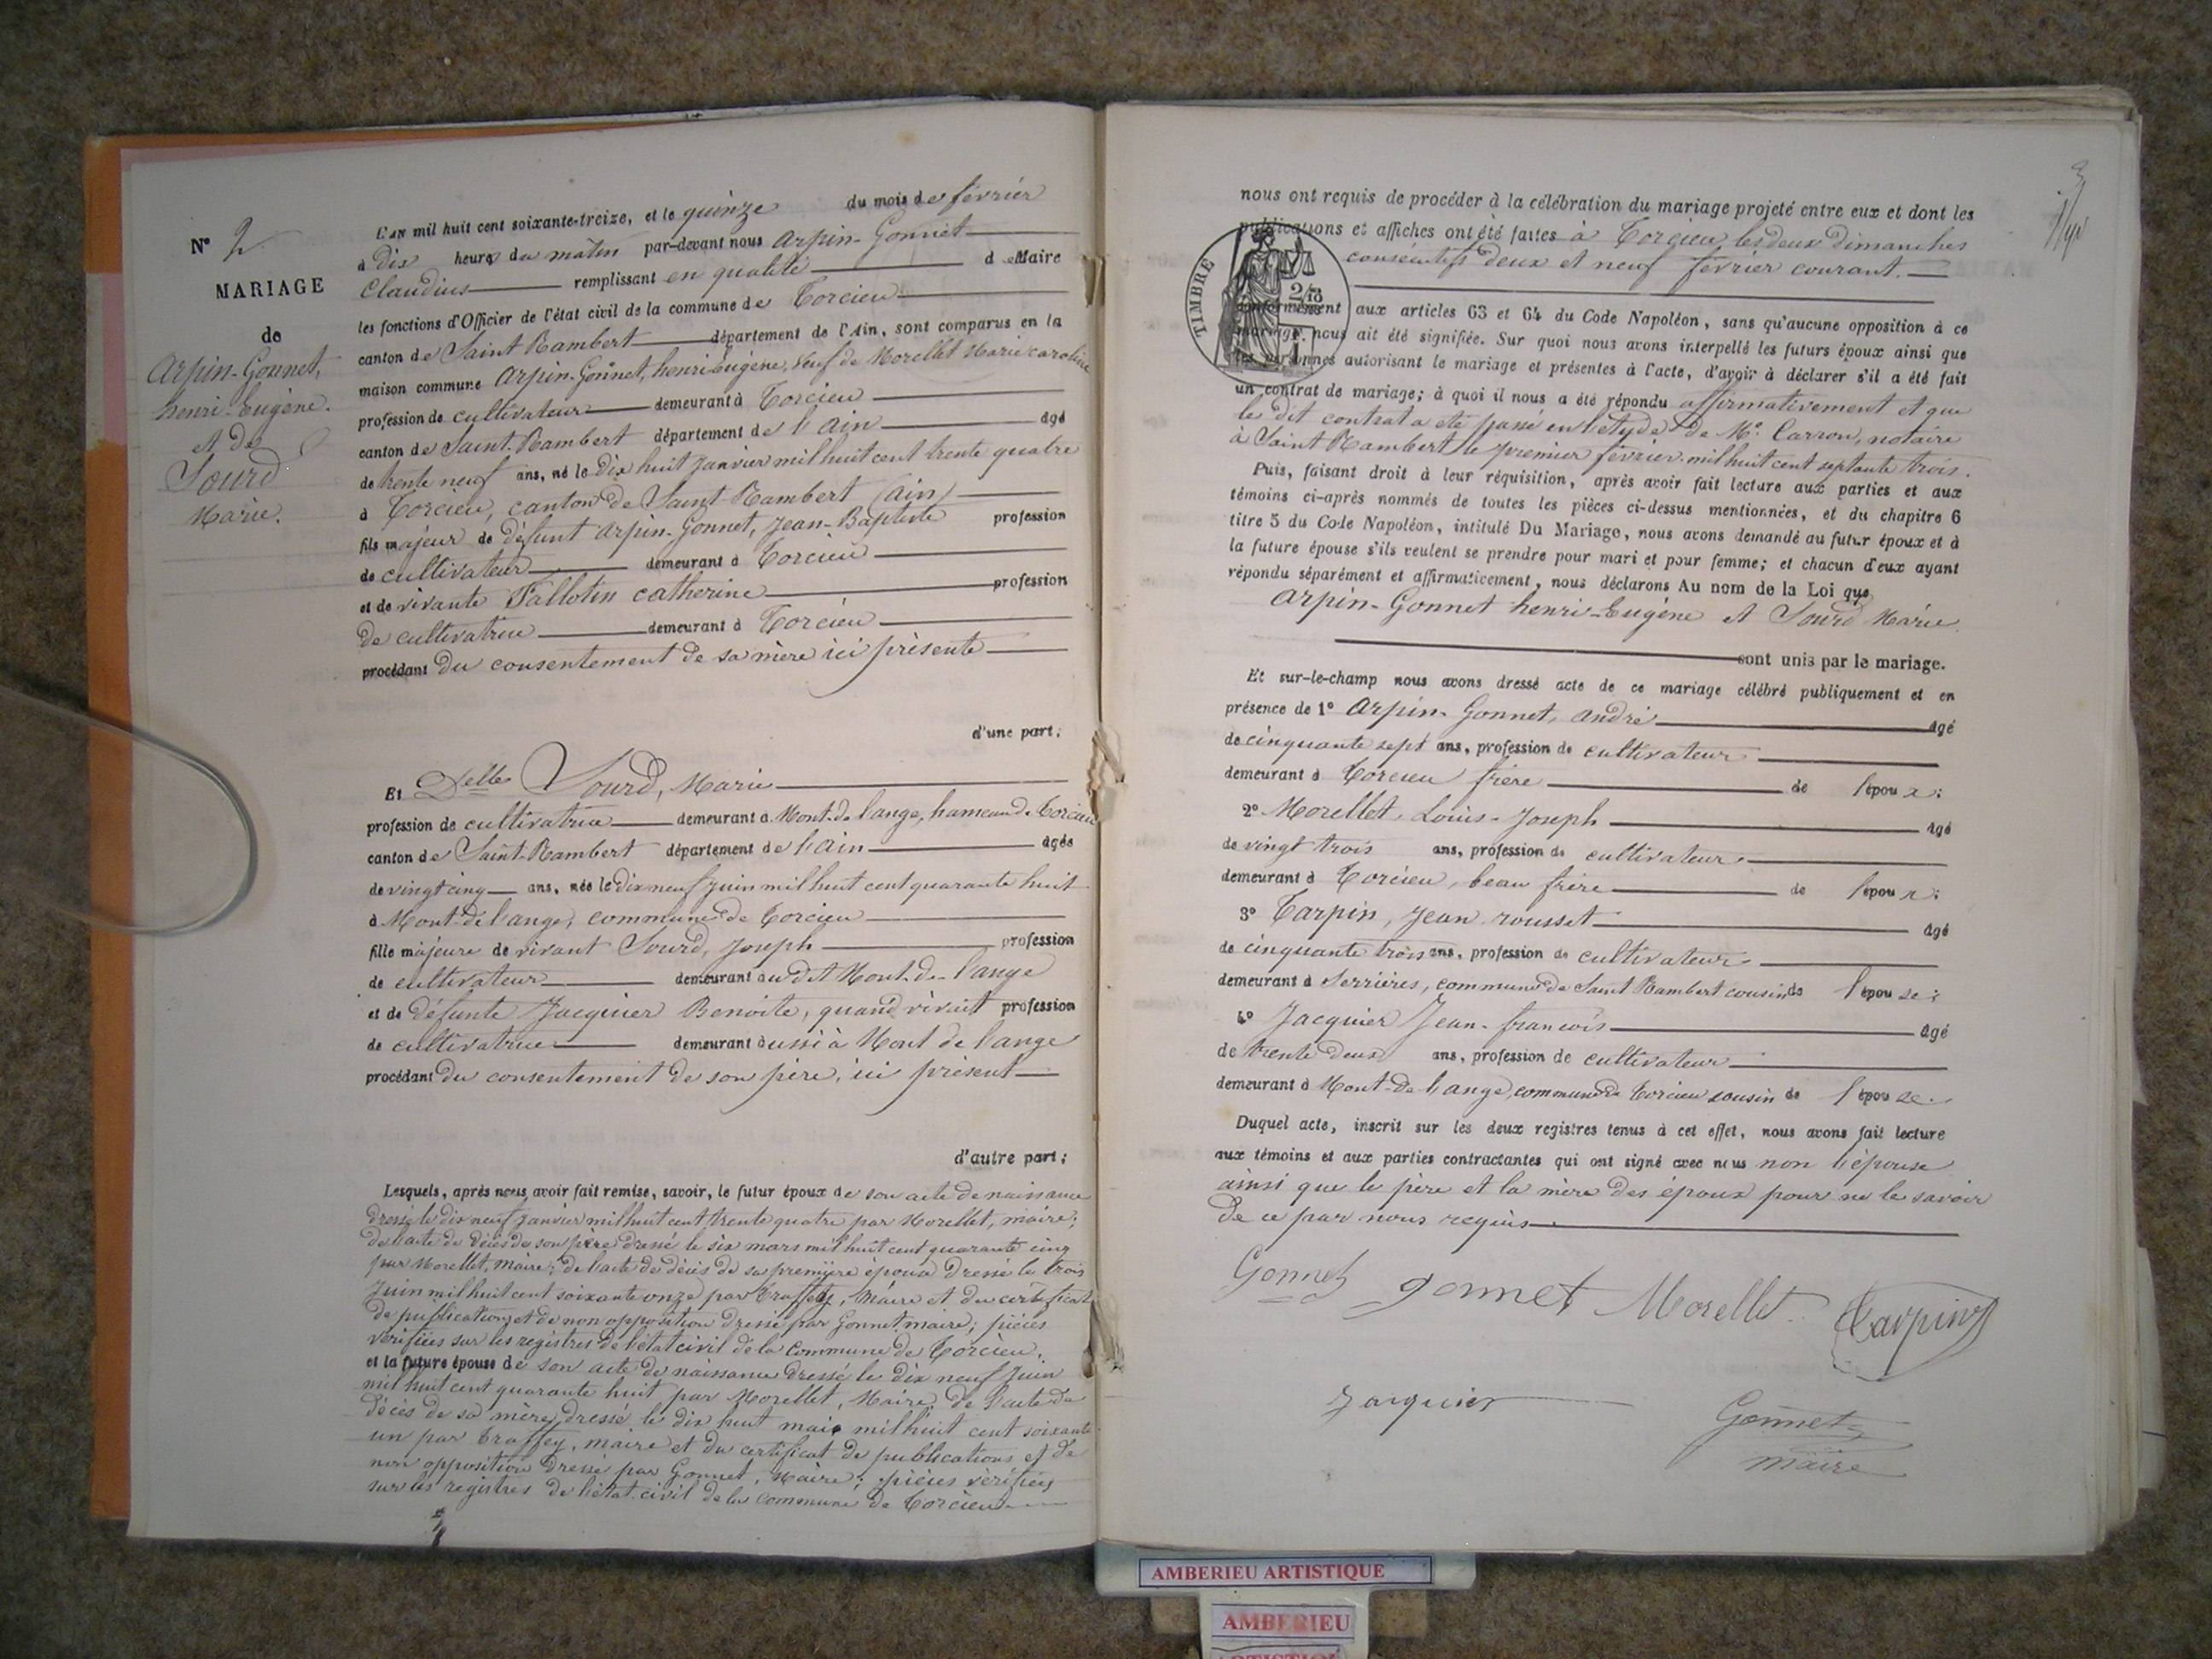 N° 2
MARIAGE
de
Arpin-Gonnet,
henri-Eugène.
et de
Sourd
Marie.
L'AN mil huit cent soixante-treize, et le quinze du mois de février
à dix heures du matin par-devant nous Arpin-Gonnet
Claudius remplissant en qualité de Maire
les fonctions d'Officier de l'état civil de la commune de Torcieu
canton de Saint Rambert département de l'Ain, sont comparus en la
maison commune Arpin-Gonnet, henri Eugène, veuf de Morellet Marie caroline
profession de cultivateur demeurant à Torcieu
canton de Saint-Rambert département de l'ain agé
de trente neuf ans, né le Dix huit Janvier mil huit cent trente quatre
à Torcieu, canton de Saint Rambert (ain)
fils majeur de défunt Arpin-Gonnet, Jean-Baptiste profession
de cultivateur demeurant à Torcieu
et de vivante Pallotin catherine profession
De cultivatrice demeurant à Torcieu
procédant du consentement de sa mère ici présente
d'une part;
Et Delle Sourd, Marie
profession de cultivatrice demeurant à Mont-de l'ange, hameau de Torcieu
canton de Saint-Rambert département de l'ain agée
de vingt cinq ans, née le Dix neuf juin mil huit cent quarante huit
à Mont-de l'ange, commune de Torcieu
fille majeure de vivant Sourd, Joseph profession
de cultivateur demeurant au dit Mont-de-l'ange
et de défunte Jacquier Benoite, quand vivait profession
de cultivatrice demeurant aussi à Mont de l'ange
procédant du consentement de son père, ici présent
d'autre part;
Lesquels, après nous avoir fait remise, savoir, le futur époux de son acte de naissance
dressé le dix neuf janvier mil huit cent trente quatre par Morellet, maire;
de l'acte de décès de son père dressé le six mars mil huit cent quarante cinq
par Morellet, maire; de l'acte de décès de sa première épouse dressé le trois
Juin mil huit cent soixante onze par Traffey, Maire et du certificat
de publications et de non opposition dressé par Gonnet maire; pièces
vérifiées sur les registres de l'état civil de la commune de Torcieu.
et la future épouse de son acte de naissance dressé le dix neuf juin
mil huit cent quarante huit par Morellet, Maire, de l'acte de
décès de sa mère dressé le dix huit mai mil huit cent soixante
un par Traffey, maire et du certificat de publications et de
non opposition dressé par Gonnet, Maire; pièces vérifiées
sur les registres de l'état civil de la commune de Torcieu
3
nous ont requis de procéder à la célébration du mariage projeté entre eux et dont les
publications et affiches ont été faites à Torcieu les deux Dimanches
consécutifs deux et neuf février courant.
TIMBRE
conformément aux articles 63 et 64 du Code Napoléon, sans qu'aucune opposition à ce
mariage nous ait été signifiée. Sur quoi nous avons interpellé les futurs époux ainsi que
les personnes autorisant le mariage et présentes à l'acte, d'avoir à déclarer s'il a été fait
un contrat de mariage; à quoi il nous a été répondu affirmativement et que
le dit contrat a été passé en l'etude de Me. Carron, notaire
à Saint Rambert le premier février mil huit cent septante trois.
Puis, faisant droit à leur réquisition, après avoir fait lecture aux parties et aux
témoins ci-après nommés de toutes les pièces ci-dessus mentionnées, et du chapitre 6
titre 5 du Code Napoléon, intitulé Du Mariage, nous avons demandé au futur époux et à
la future épouse s'ils veulent se prendre pour mari et pour femme; et chacun d'eux ayant
répondu séparément et affirmativement, nous déclarons Au nom de la Loi que
Arpin-Gonnet henri-Eugène et Sourd Marie
sont unis par le mariage.
Et sur-le-champ nous avons dressé acte de ce mariage célébré publiquement et en
présence de 1° Arpin-Gonnet, André agé
de cinquante sept ans, profession de cultivateur
demeurant à Torcieu frère de l'époux;
2° Morellet Louis-Joseph agé
de vingt trois ans, profession de cultivateur
demeurant à Torcieu, beau frère de l'époux;
3° Tarpin, Jean rousset agé
de cinquante trois ans, profession de cultivateur
demeurant à Serrières, commune de Saint Rambert cousin de l'épouse;
4° Jacquier Jean-francois agé
de trente deux ans, profession de cultivateur
demeurant à Mont-de l'ange, commune de Torcieu cousin de l'épouse.
Duquel acte, inscrit sur les deux registres tenus à cet effet, nous avons fait lecture
aux témoins et aux parties contractantes qui ont signé avec nous non l'épouse
ainsi que le père et la mère des époux pour ne le savoir
de ce par nous requis.
Gonnet gonnet Morellet Tarpin
Jacquier
Gonnet
maire
AMBERIEU ARTISTIQUE
AMBERIEU
ARTISTIQUE